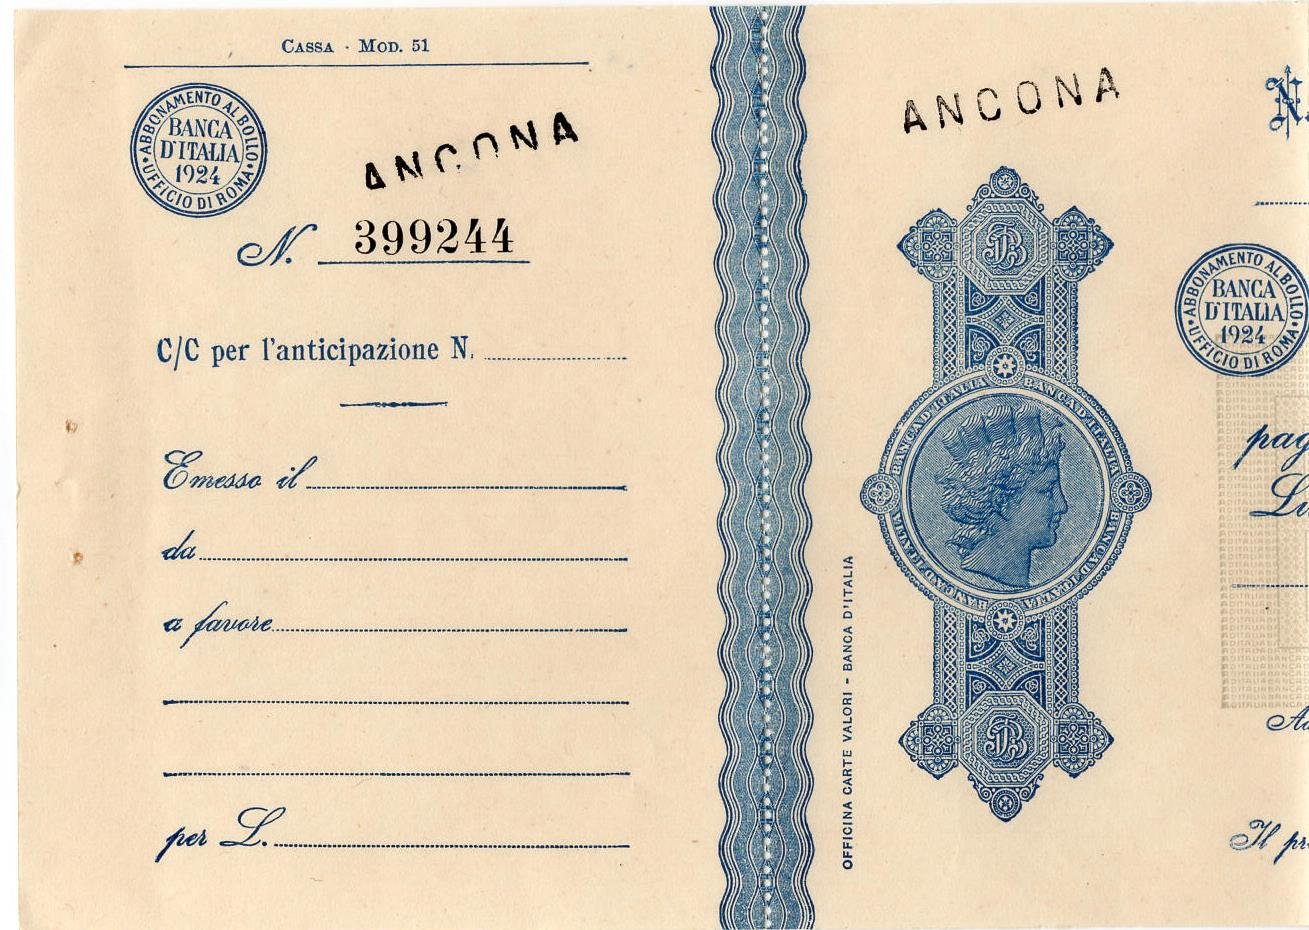 CASSA · MOD. 51
ABBONAMENTO AL BOLLO
BANCA
D'ITALIA
1924
UFFICIO DI ROMA
ANCONA
N. 399244
C/C per l'anticipazione N.
Emesso il
da
a favore
per L.
ANCONA
BANCA D'ITALIA BANCA D'ITALIA BANCA D'ITALIA BANCA D'ITALIA
OFFICINA CARTE VALORI - BANCA D'ITALIA
N.
ABBONAMENTO AL BOLLO
BANCA
D'ITALIA
1924
UFFICIO DI ROMA
pag
Li
Ad
Il pr